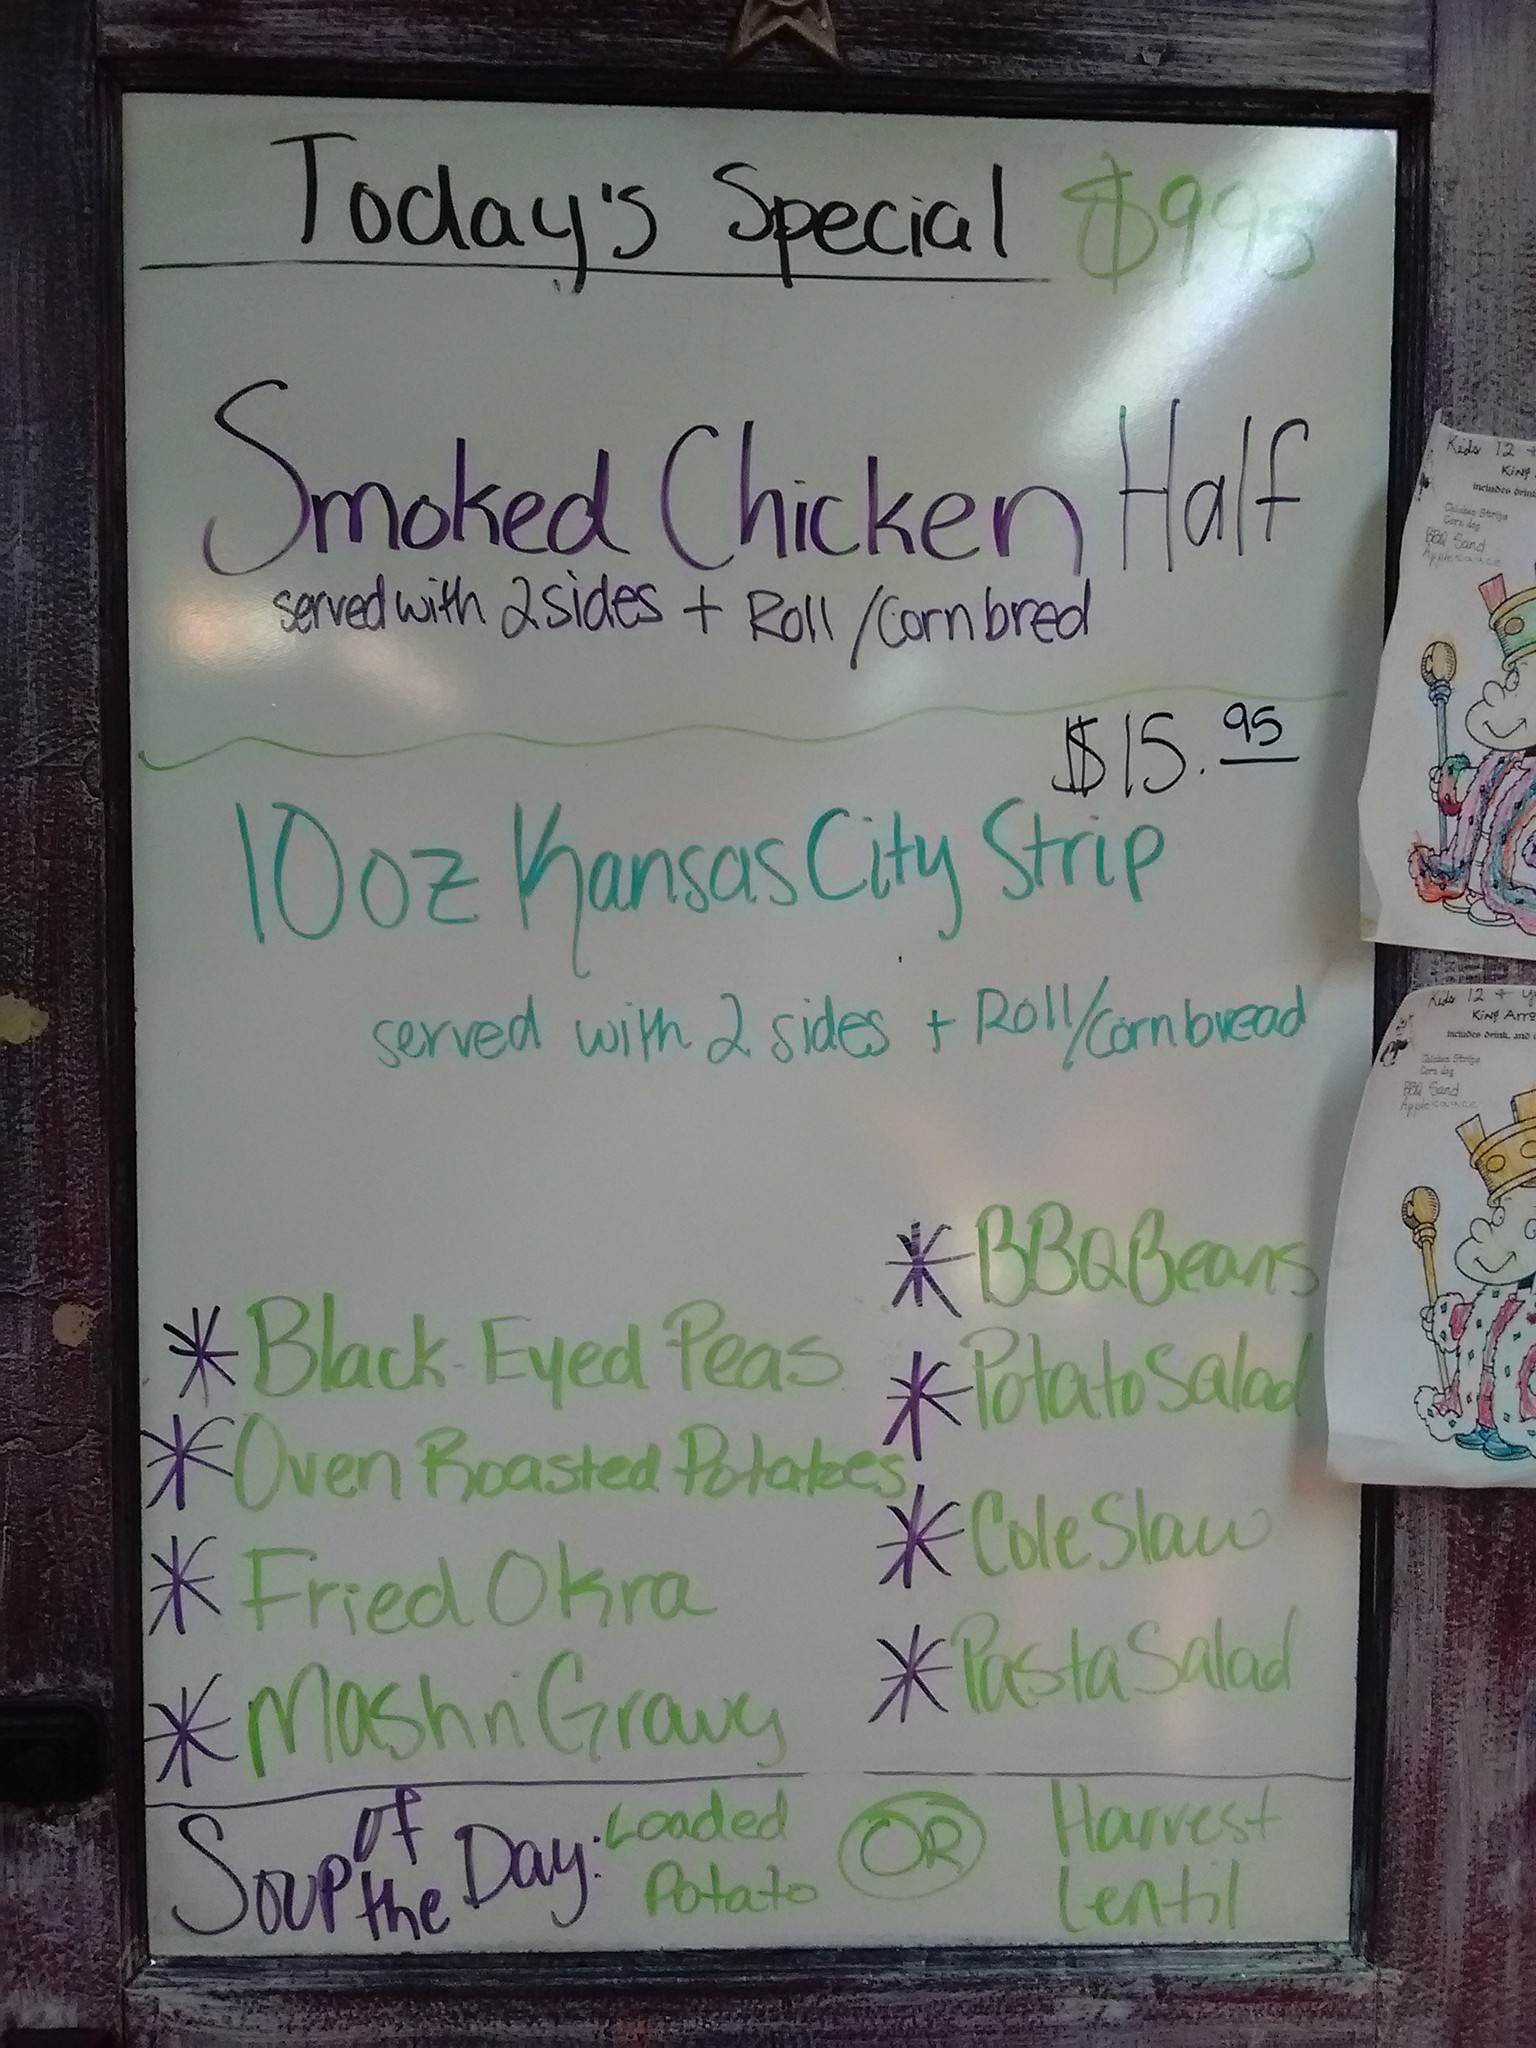 Today's Special $9.95
Smoked Chicken Half
served with 2 sides + Roll/Cornbred
$15.95
10oz Kansas City Strip
served with 2 sides + Roll/Cornbread
* Black-Eyed Peas
* Oven Roasted Potatoes
* Fried Okra
* Mash n Gravy
* BBQ Beans
* Potato Salad
* Cole Slaw
* Pasta Salad
Soup of the Day: Loaded Potato OR Harvest Lentil
Kids 12 +
King
includes drin
Chicken Strips
Corn dog
BBQ Sand
Applesauce
Kids 12 +
King Arro
includes drink, and
Chicken Strips
Corn dog
BBQ Sand
Applesauce